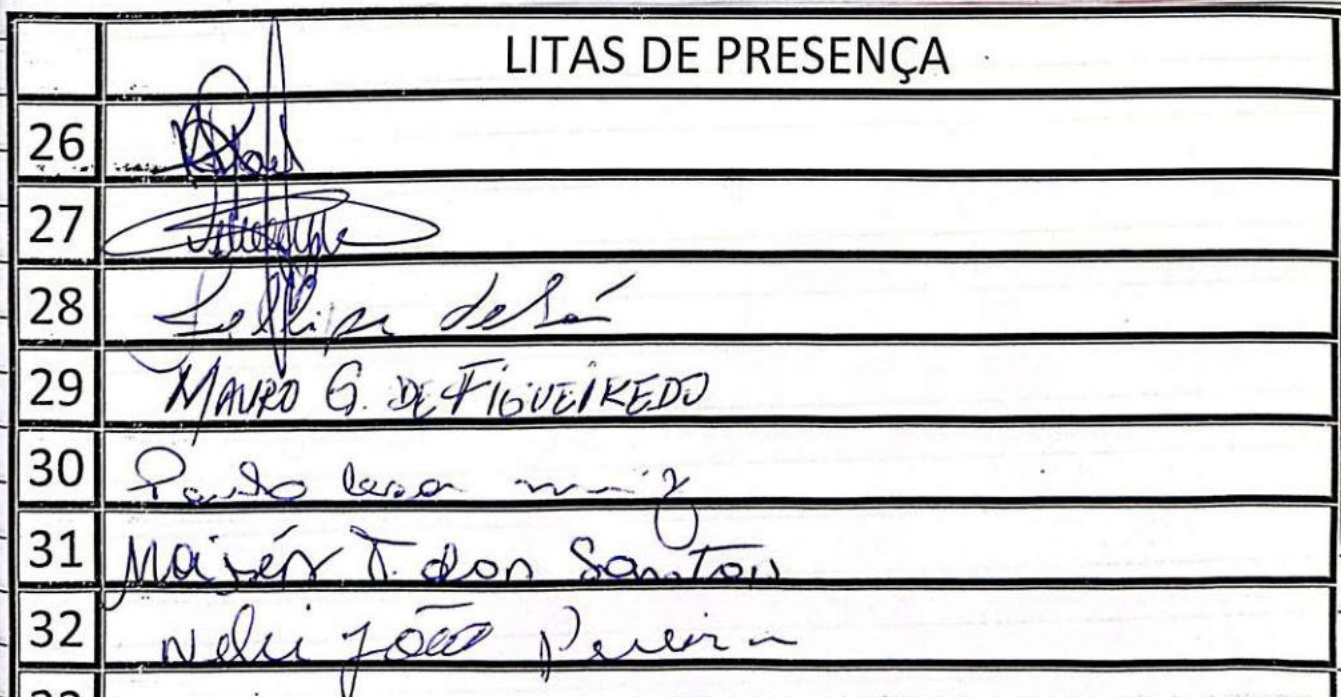 LITAS DE PRESENÇA
26
27
28 Fellipe de Sá
29 MAURO G. DE FIGUEIREDO
30 Paulo Cesar Muniz
31 Moisés T. dos Santos
32 João Pereira